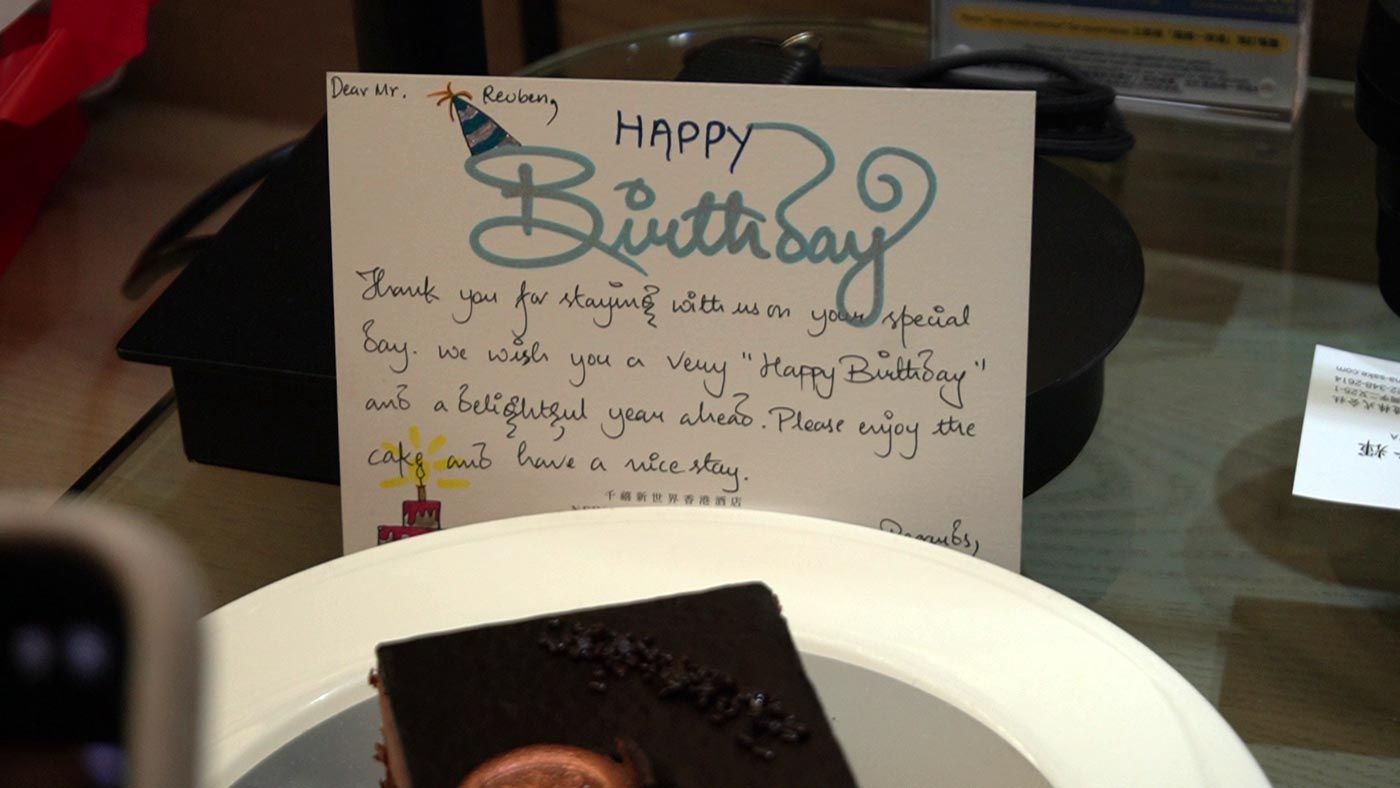 Dear Mr. Reuben,
HAPPY
Birthday
Thank you for staying with us on your special
day. We wish you a very "Happy Birthday"
and a delightful year ahead. Please enjoy the
cake and have a nice stay.
千禧新世界香港酒店
Regards,
株式会社